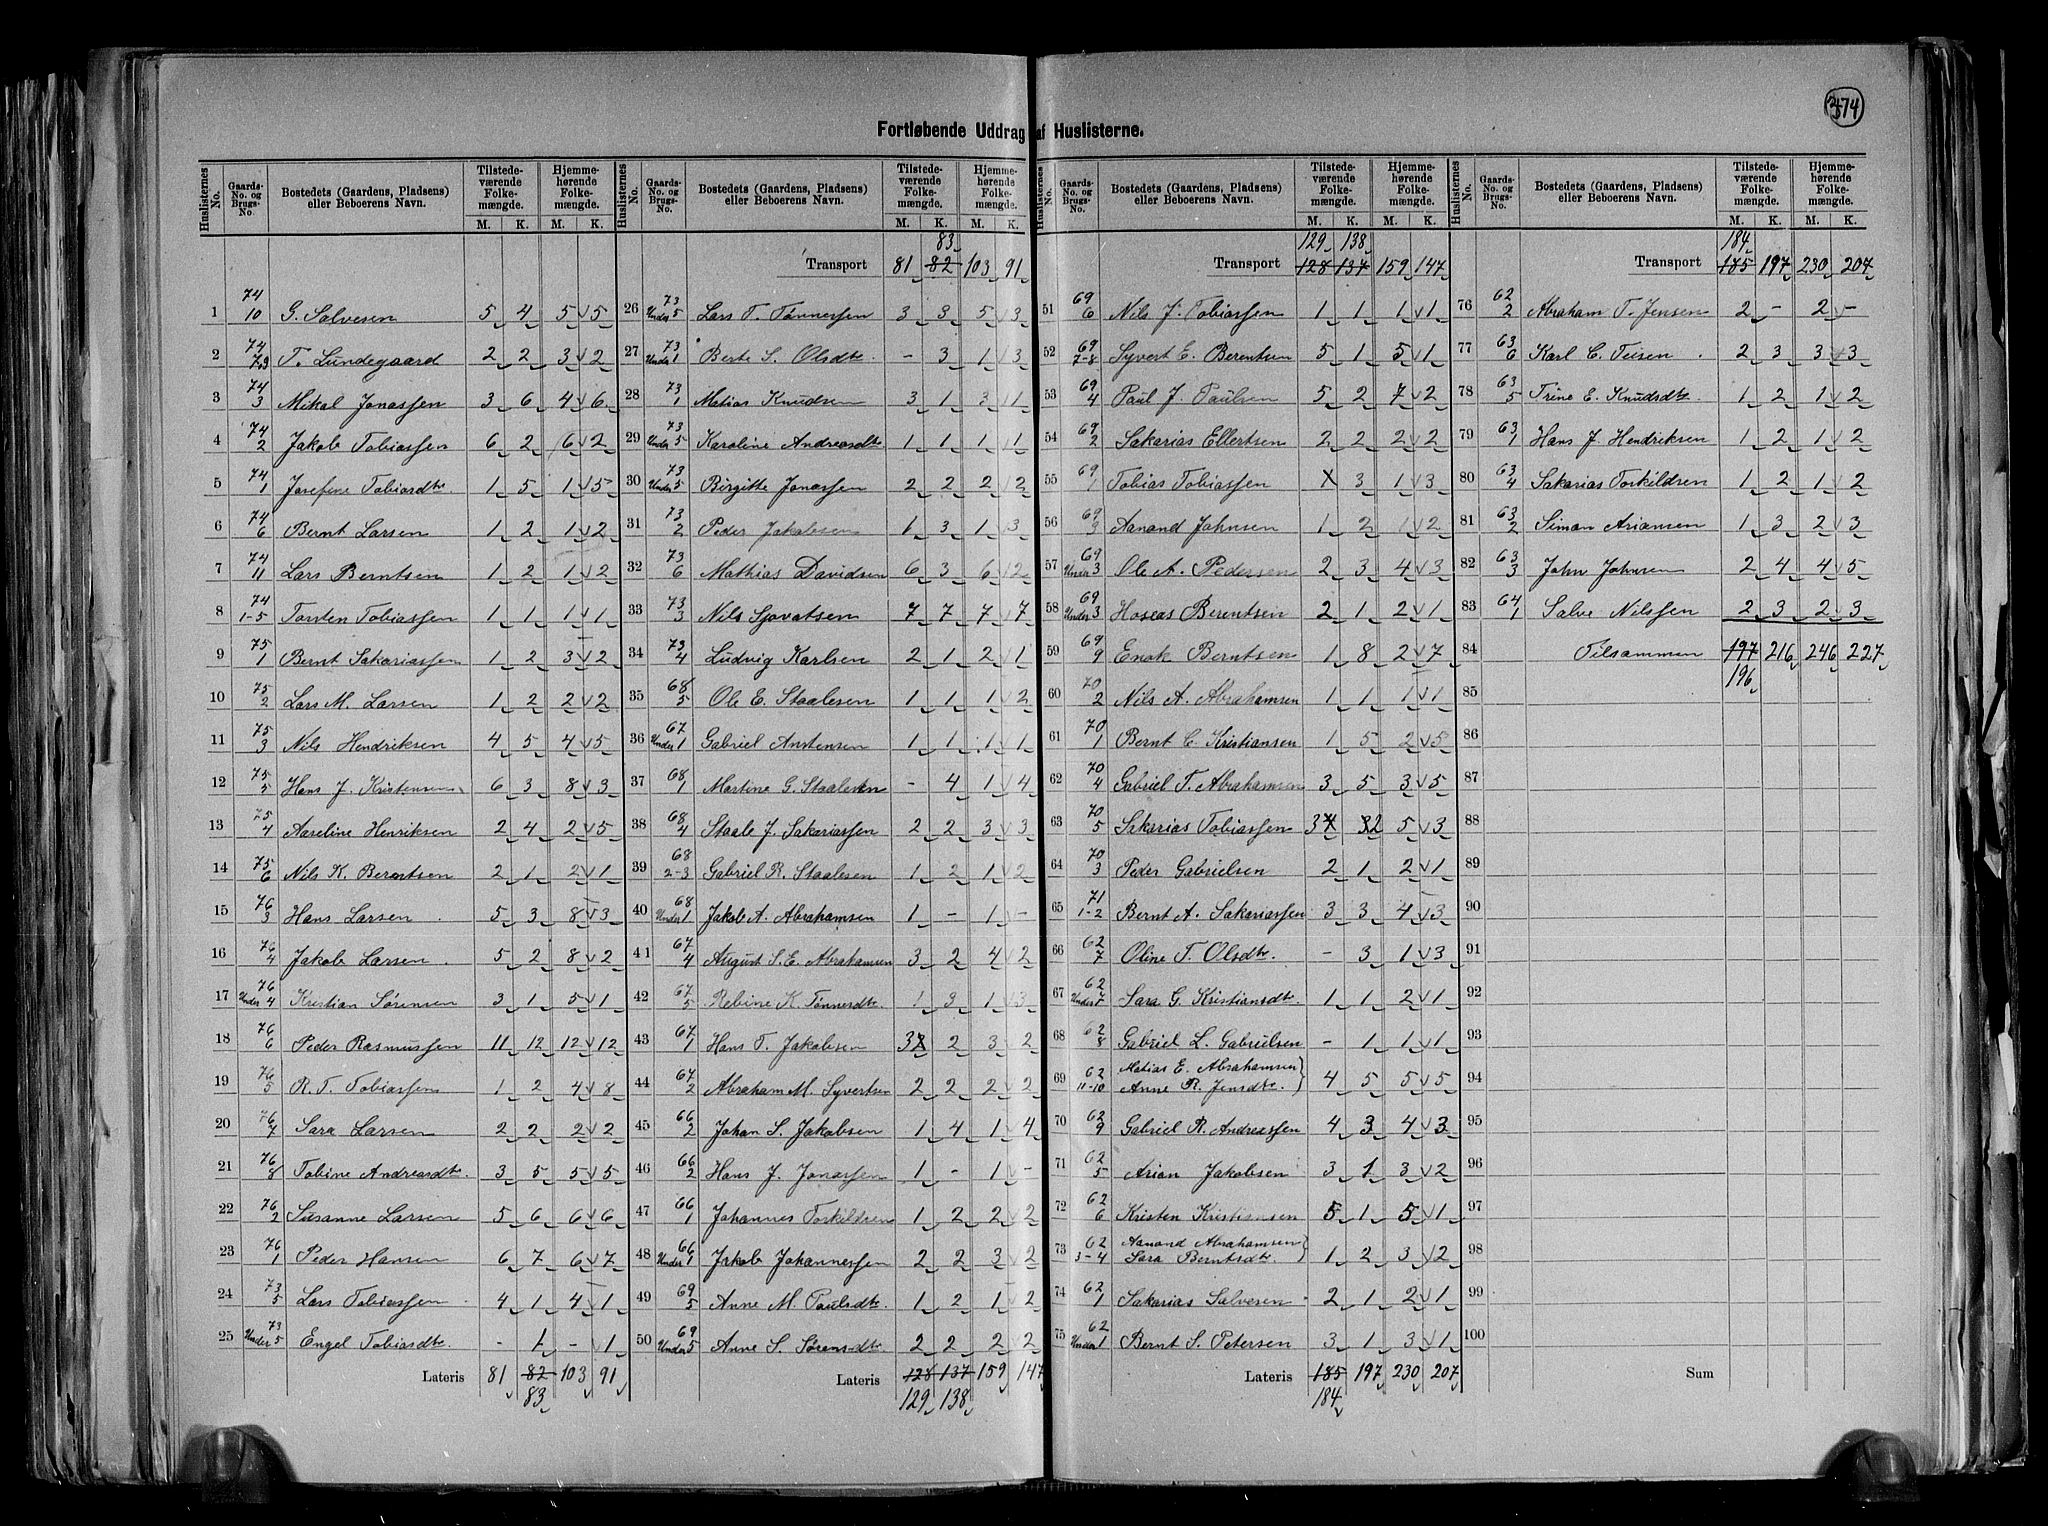 374
Fortløbende Uddrag af Huslisterne.
Huslisternes No. Gaards-No. og Brugs-No. Bostedets (Gaardens, Pladsens) eller Beboerens Navn. Tilstedeværende Folkemængde. M. K. Hjemmehørende Folkemængde. M. K.
1 74/10 G. Salvesen 5 4 5 5
2 74/7,9 T. Lundegaard 2 2 3 2
3 74/3 Mikal Jonassen 3 6 4 6
4 74/2 Jakob Tobiassen 6 2 6 2
5 74/1 Josefine Tobiasdtr. 1 5 1 5
6 74/6 Bernt Larsen 1 2 1 2
7 74/11 Lars Berntsen 1 2 1 2
8 74/1-5 Torsten Tobiassen 1 1 1 1
9 75/1 Bernt Sakariassen 1 2 3 2
10 75/2 Lars M. Larsen 1 2 2 2
11 75/3 Nils Hendriksen 4 5 4 5
12 75/5 Hans J. Kristensen 6 3 8 3
13 75/4 Aaseline Henriksen 2 4 2 5
14 75/6 Nils K. Berntsen 2 1 2 1
15 76/3 Hans Larsen 5 3 8 3
16 76/4 Jakob Larsen 5 2 8 2
17 76/Under 4 Kristian Sørensen 3 1 5 1
18 76/6 Peder Rasmussen 11 12 12 12
19 76/5 R. T. Tobiassen 1 2 4 8
20 76/7 Sara Larsen 2 2 2 2
21 76/8 Tobine Andreasdtr. 3 5 5 5
22 76/2 Susanne Larsen 5 6 6 6
23 76/1 Peder Hansen 6 7 6 7
24 73/5 Lars Tobiassen 4 1 4 1
25 73/Under 5 Engel Tobiasdtr. - 1 - 1
Lateris 81 82 103 91
83
Huslisternes No. Gaards-No. og Brugs-No. Bostedets (Gaardens, Pladsens) eller Beboerens Navn. Tilstedeværende Folkemængde. M. K. Hjemmehørende Folkemængde. M. K.
83
Transport 81 82 103 91
26 73/Under 5 Lars T. Tønnessen 3 3 5 3
27 73/Under 1 Berte S. Olsdtr. - 3 1 3
28 73/1 Matias Knudsen 3 1 3 1
29 73/Under 5 Karoline Andreasdtr 1 1 1 1
30 73/Under 5 Birgitte Jonassen 2 2 2 2
31 73/2 Peder Jakobsen 1 3 1 3
32 73/6 Mathias Davidsen 6 3 6 2
33 73/3 Nils Sjovatsen 7 7 7 7
34 73/4 Ludvig Karlsen 2 1 2 1
35 68/5 Ole E. Staalesen 1 1 1 2
36 67/Under 1 Gabriel Anstensen 1 1 1 1
37 68/1 Martine G. Staalesen - 4 1 4
38 68/4 Staale J. Sakariassen 2 2 3 3
39 68/2-3 Gabriel R. Staalesen 1 2 1 2
40 68/Under 1 Jakob A. Abrahamsen 1 - 1 -
41 67/4 August S. E. Abrahamsen 3 2 4 2
42 67/5 Rebine K. Tønnesdtr. 1 3 1 3
43 67/1 Hans T. Jakobsen 3 2 3 2
44 67/2 Abraham M. Syvertsen 2 2 2 2
45 66/2 Johan S. Jakobsen 1 4 1 4
46 66/2 Hans J. Jonassen 1 - 1 -
47 66/1 Johannes Torkildsen 1 2 2 2
48 66/Under 1 Jakob Johannessen 2 2 3 2
49 69/5 Anne M. Paulsdtr. 1 2 1 2
50 69/Under 5 Anne S. Sørensdtr. 2 2 2 2
Lateris 128 137 159 147
129 138
Huslisternes No. Gaards-No. og Brugs-No. Bostedets (Gaardens, Pladsens) eller Beboerens Navn. Tilstedeværende Folkemængde. M. K. Hjemmehørende Folkemængde. M. K.
129 138
Transport 128 137 159 147
51 69/6 Nils J. Tobiassen 1 1 1 1
52 69/7-8 Syvert E. Berentsen 5 1 5 1
53 69/4 Paul J. Paulsen 5 2 7 2
54 69/2 Sakarias Ellertsen 2 2 2 2
55 69/1 Tobias Tobiassen 3 1 3
56 69/3 Aanand Johnsen 1 2 1 2
57 69/Under 3 Ole A. Pedersen 2 3 4 3
58 69/Under 3 Hoseas Berentsen 2 1 2 1
59 69/9 Enok Berntsen 1 8 2 7
60 70/2 Nils A. Abrahamsen 1 1 1 1
61 70/1 Bernt C. Kristiansen 1 5 2 5
62 70/4 Gabriel T. Abrahamsen 3 5 3 5
63 70/5 Sakarias Tobiassen 3 2 5 3
64 70/3 Peder Gabrielsen 2 1 2 1
65 71/1-2 Bernt A. Sakariassen 3 3 4 3
66 62/7 Oline T. Olsdtr. - 3 1 3
67 62/Under 7 Sara G. Kristiansdtr. 1 1 2 1
68 62/8 Gabriel L. Gabrielsen - 1 1 1
69 62/11-10 Matias E. Abrahamsen } Anne R. Jensdtr. 4 5 5 5
70 62/9 Gabriel R. Andreassen 4 3 4 3
71 62/5 Arian Jakobsen 3 1 3 2
72 62/6 Kristen Kristiansen 5 1 5 1
73 62/3-4 Aanand Abrahamsen } Sara Berntsdtr. 1 2 3 2
74 62/1 Sakarias Salvesen 2 1 2 1
75 62/Under 1 Bernt S. Petersen 3 1 3 1
Lateris 185 197 230 207
184
Huslisternes No. Gaards-No. og Brugs-No. Bostedets (Gaardens, Pladsens) eller Beboerens Navn. Tilstedeværende Folkemængde. M. K. Hjemmehørende Folkemængde. M. K.
184
Transport 185 197 230 207
76 62/2 Abraham T. Jensen 2 - 2 -
77 63/6 Karl C. Teisen 2 3 3 3
78 63/5 Trine E. Knudsdtr. 1 2 1 2
79 63/1 Hans J. Hendriksen 1 2 1 2
80 63/4 Sakarias Torkildsen 1 2 1 2
81 63/2 Simon Ariansen 1 3 2 3
82 63/3 John Johnsen 2 4 4 5
83 64/1 Salve Nilssen 2 3 2 3
84 Tilsammen 197 216 246 227
85 196
86
87
88
89
90
91
92
93
94
95
96
97
98
99
100
Sum